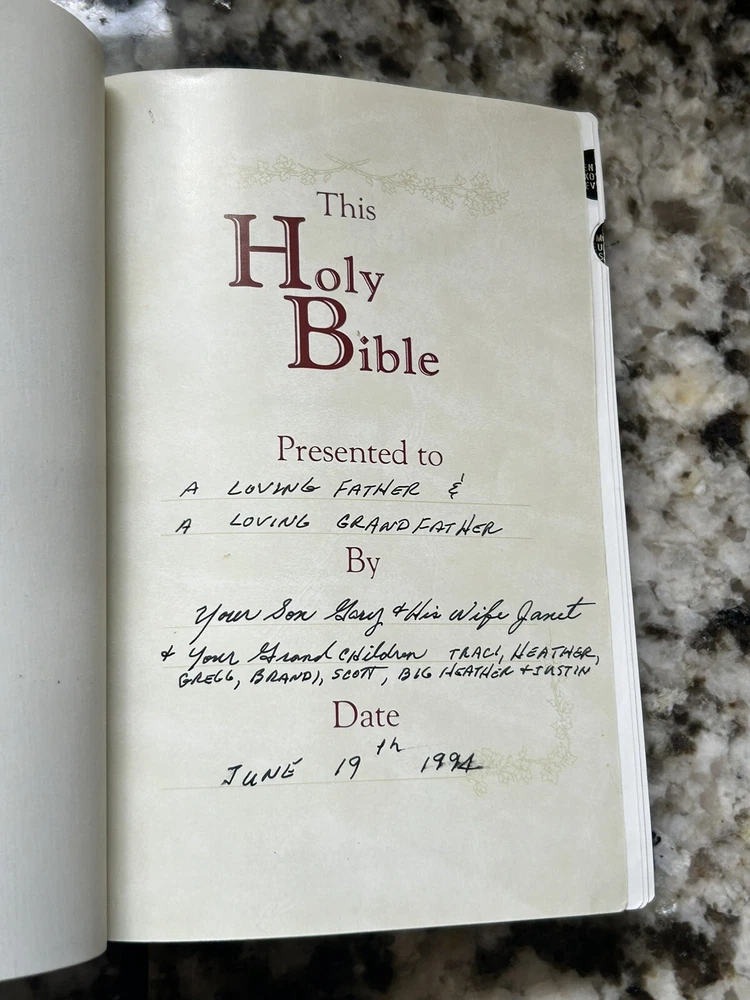 This
Holy
Bible
Presented to
A LOVING FATHER &
A LOVING GRANDFATHER
By
Your Son Gary & His Wife Janet
& Your Grand Children TRACI, HEATHER,
GREGG, BRANDI, SCOTT, BIG HEATHER & JUSTIN
Date
JUNE 19th 1994